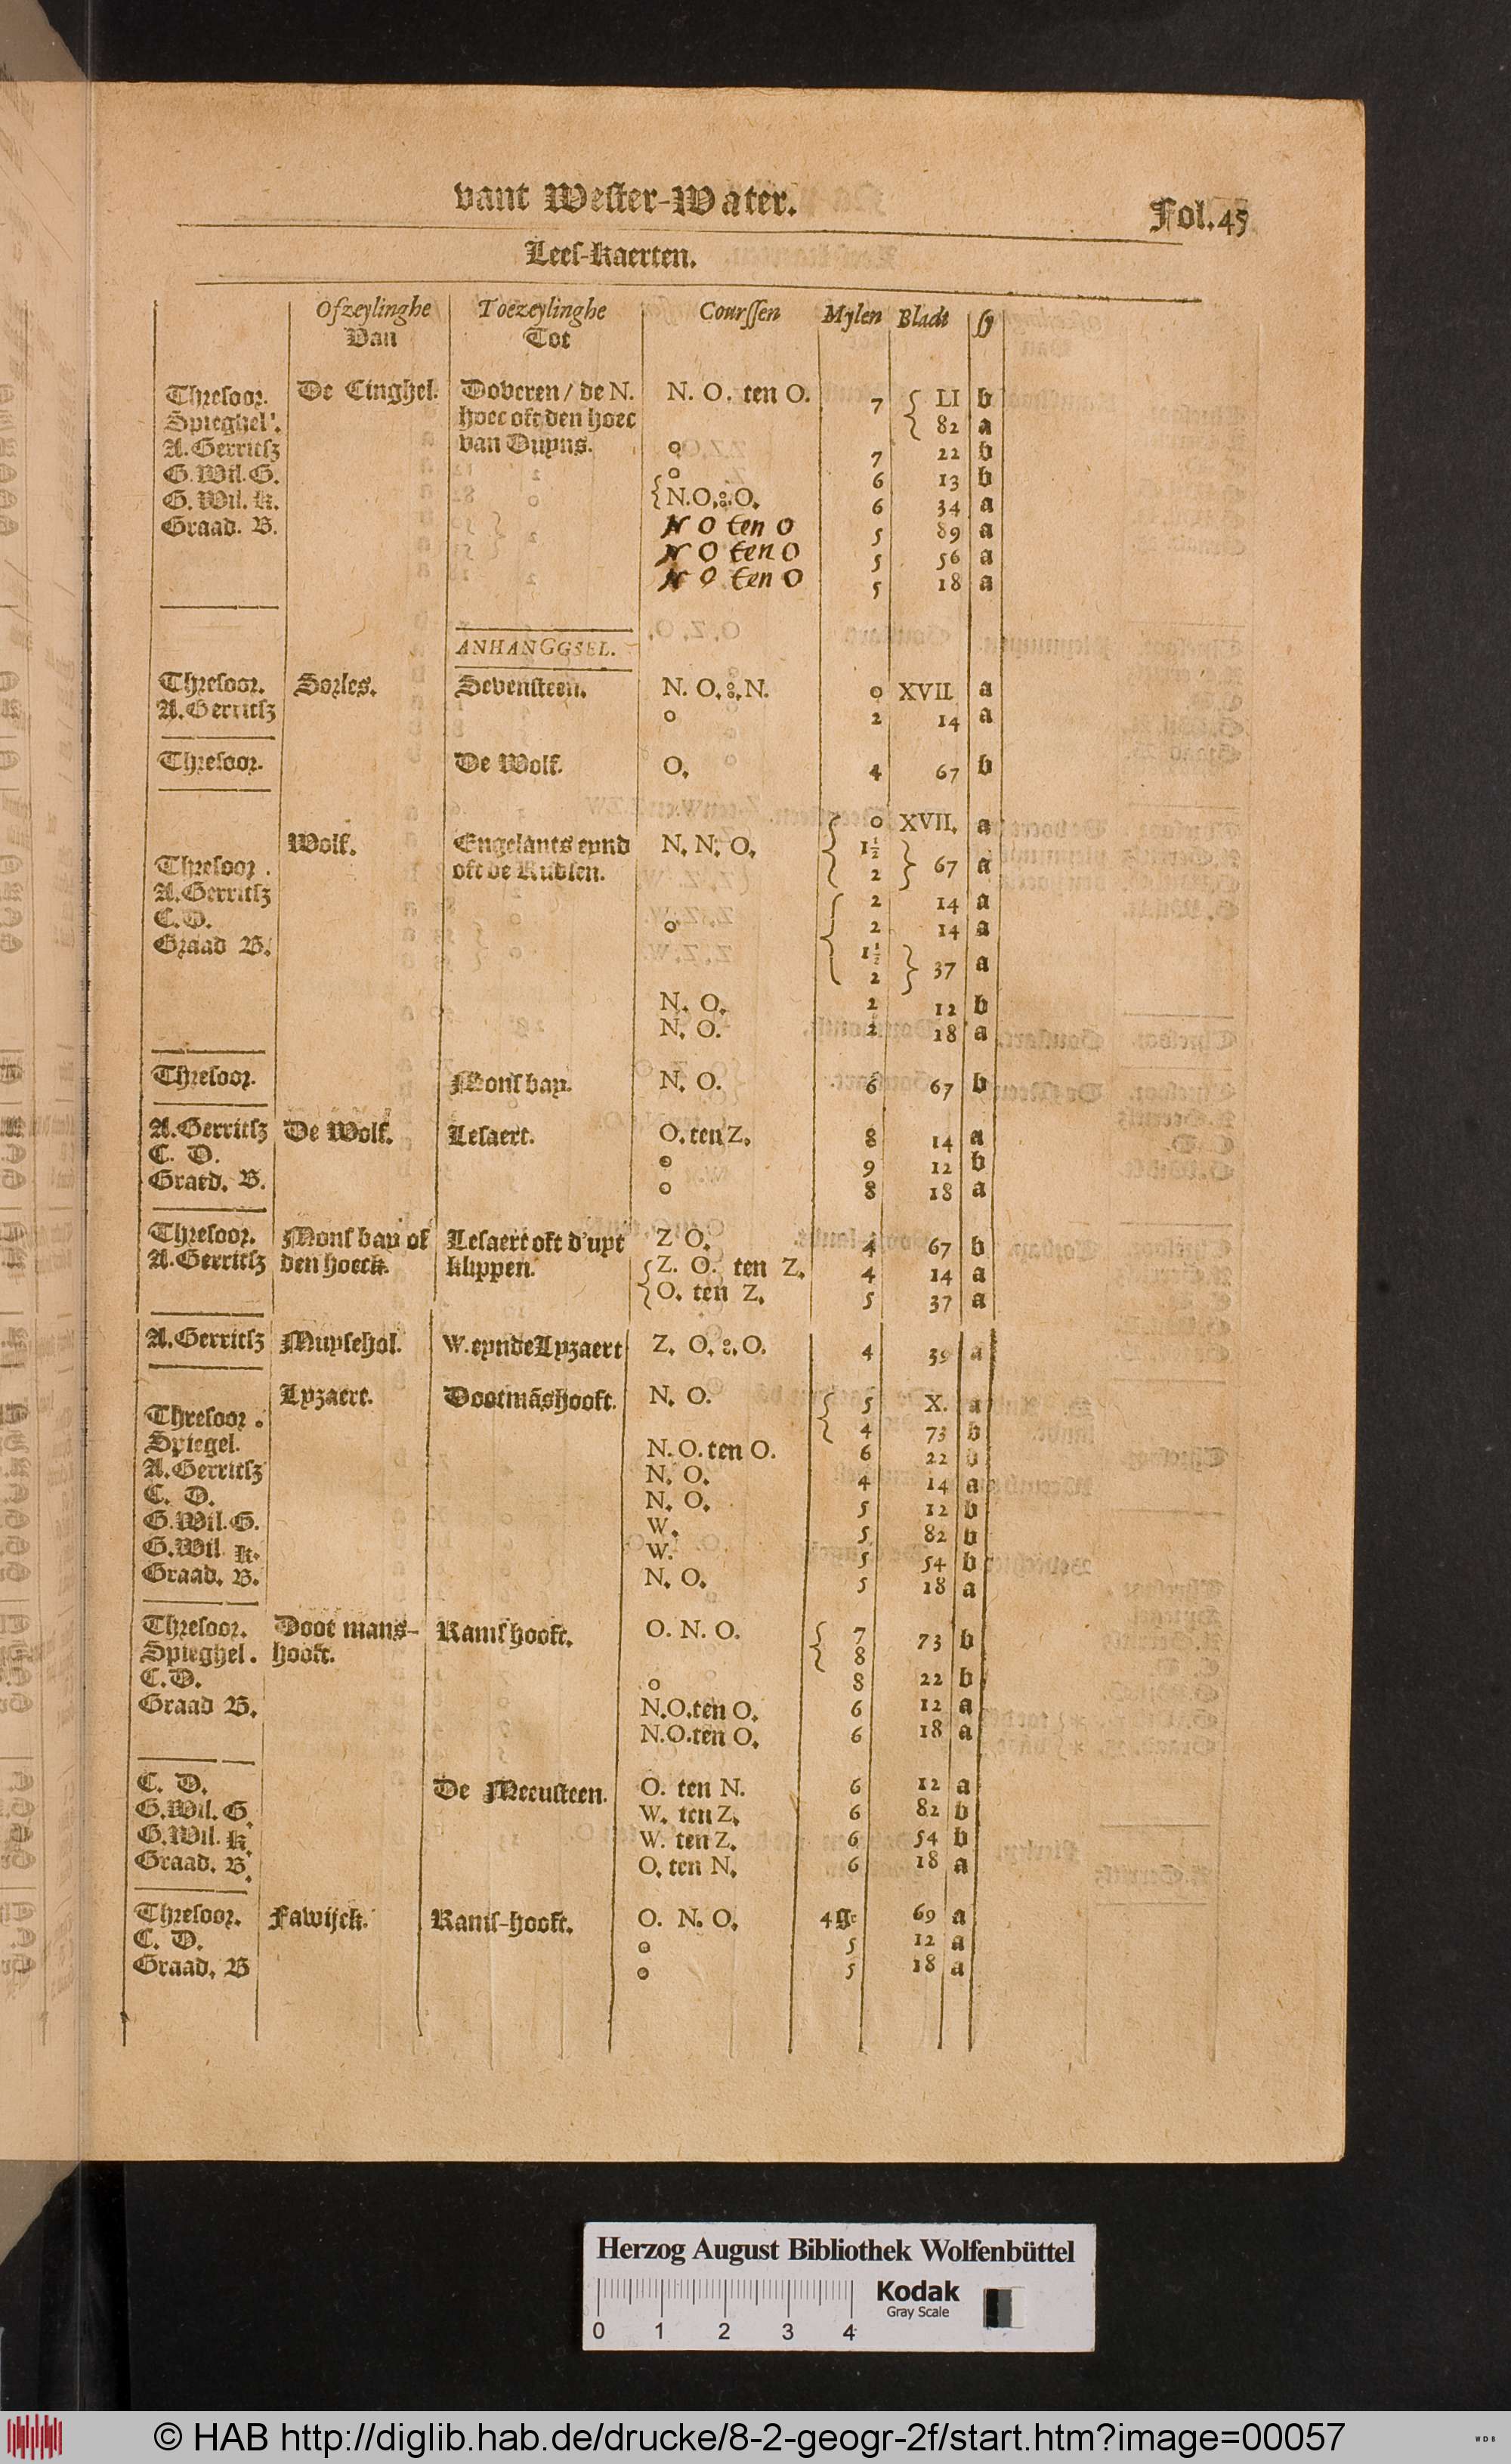 vant Wester-Water.
Fol. 45
Lees-kaerten.
Ofzeylinghe Toezeylinghe Courssen Mylen Bladt sy
Van Tot
Thresoor. De Cinghel. Doveren / de N. N. O. ten O. 7 { LI b
Spieghel. hoec oft den hoec { 82 a
A. Gerritsz van Duyns. o 7 22 b
G. Wil. G. o 6 13 b
G. Wil. K. { N.O.:.O. 6 34 a
Graad. B. N O ten O 5 89 a
N O ten O 5 56 a
N O ten O 5 18 a
ANHANGGSEL.
Thresoor. Sorles. Sevensteen. N. O.:.N. 0 XVII a
A. Gerritsz o 2 14 a
Thresoor. De Wolf. O. 4 67 b
{ 0 XVII. a
Wolf. Engelants eynd N. N. O. { 1½ } 67 a
Thresoor. oft de Rudsen. { 2 }
A. Gerritsz { 2 14 a
C. D. o { 2 14 a
Graad B. { 1½ } 37 a
{ 2 }
N. O. 2 12 b
N. O. 2 18 a
Thresoor. Mons bay. N. O. 6 67 b
A. Gerritsz De Wolf. Lesaert. O. ten Z. 8 14 a
C. D. o 9 12 b
Graed. B. o 8 18 a
Thresoor. Mons bay of Lesaert oft d'uyt Z O. 4 67 b
A. Gerritsz den hoeck. klippen. { Z. O. ten Z. 4 14 a
{ O. ten Z. 5 37 a
A. Gerritsz Muysehol. W. eynde Lyzaert Z. O.:.O. 4 39 a
Lyzaert. Dootmãshooft. N. O. { 5 X. a
Thresoor. { 4 73 b
Spiegel. N. O. ten O. 6 22 b
A. Gerritsz N. O. 4 14 a
C. D. N. O. 5 12 b
G. Wil. G. W. 5 82 b
G. Wil K. W. 5 54 b
Graad. B. N. O. 5 18 a
Thresoor. Doot mans- Rams hooft. O. N. O. { 7 73 b
Spieghel. hooft. { 8
C. D. o 8 22 b
Graad B. N.O.ten O. 6 12 a
N.O.ten O. 6 18 a
C. D. De Meeusteen. O. ten N. 6 12 a
G. Wil. G. W. ten Z. 6 82 b
G. Wil. K. W. ten Z. 6 54 b
Graad. B. O. ten N. 6 18 a
Thresoor. Fawijck. Rams-hooft. O. N. O. 4 g: 69 a
C. D. o 5 12 a
Graad. B o 5 18 a
Herzog August Bibliothek Wolfenbüttel
Kodak
Gray Scale
0 1 2 3 4
© HAB http://diglib.hab.de/drucke/8-2-geogr-2f/start.htm?image=00057
WDB